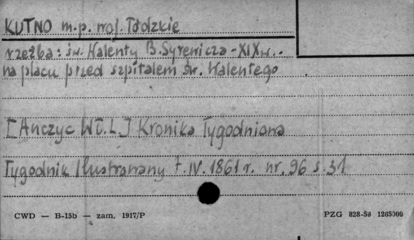 KUTNO m.p. woj. Łódzkie
rzeźba: św. Walenty B. Syrenicza - XIXw..
na placu przed szpitalem św. Walentego
[Anczyc Wł. L.] Kronika Tygodniowa
Tygodnik Ilustrowany t. IV. 1861 r. nr. 96 s. 31
CWD — B-15b — zam. 1917/P
PZG 828-58 1265000